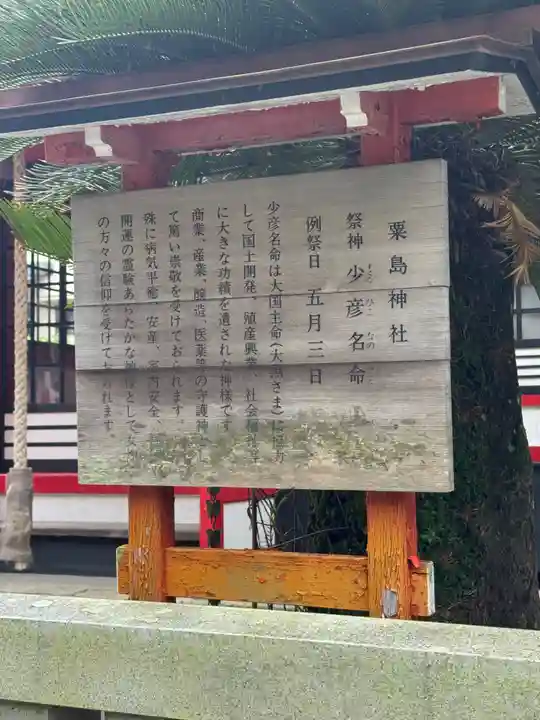 粟島神社
祭神 少彦名命
すくなひこなのみこと
例祭日 五月三日
少彦名命は大国主命(大黒さま)に協力
して国土開発、殖産興業、社会福祉等
に大きな功績を遺された神様です。
商業、産業、醸造、医薬等の守護神とし
て篤い崇敬を受けております。
殊に病気平癒、安産、家内安全、
開運の霊験あらたかな神様として
の方々の信仰を受けております。